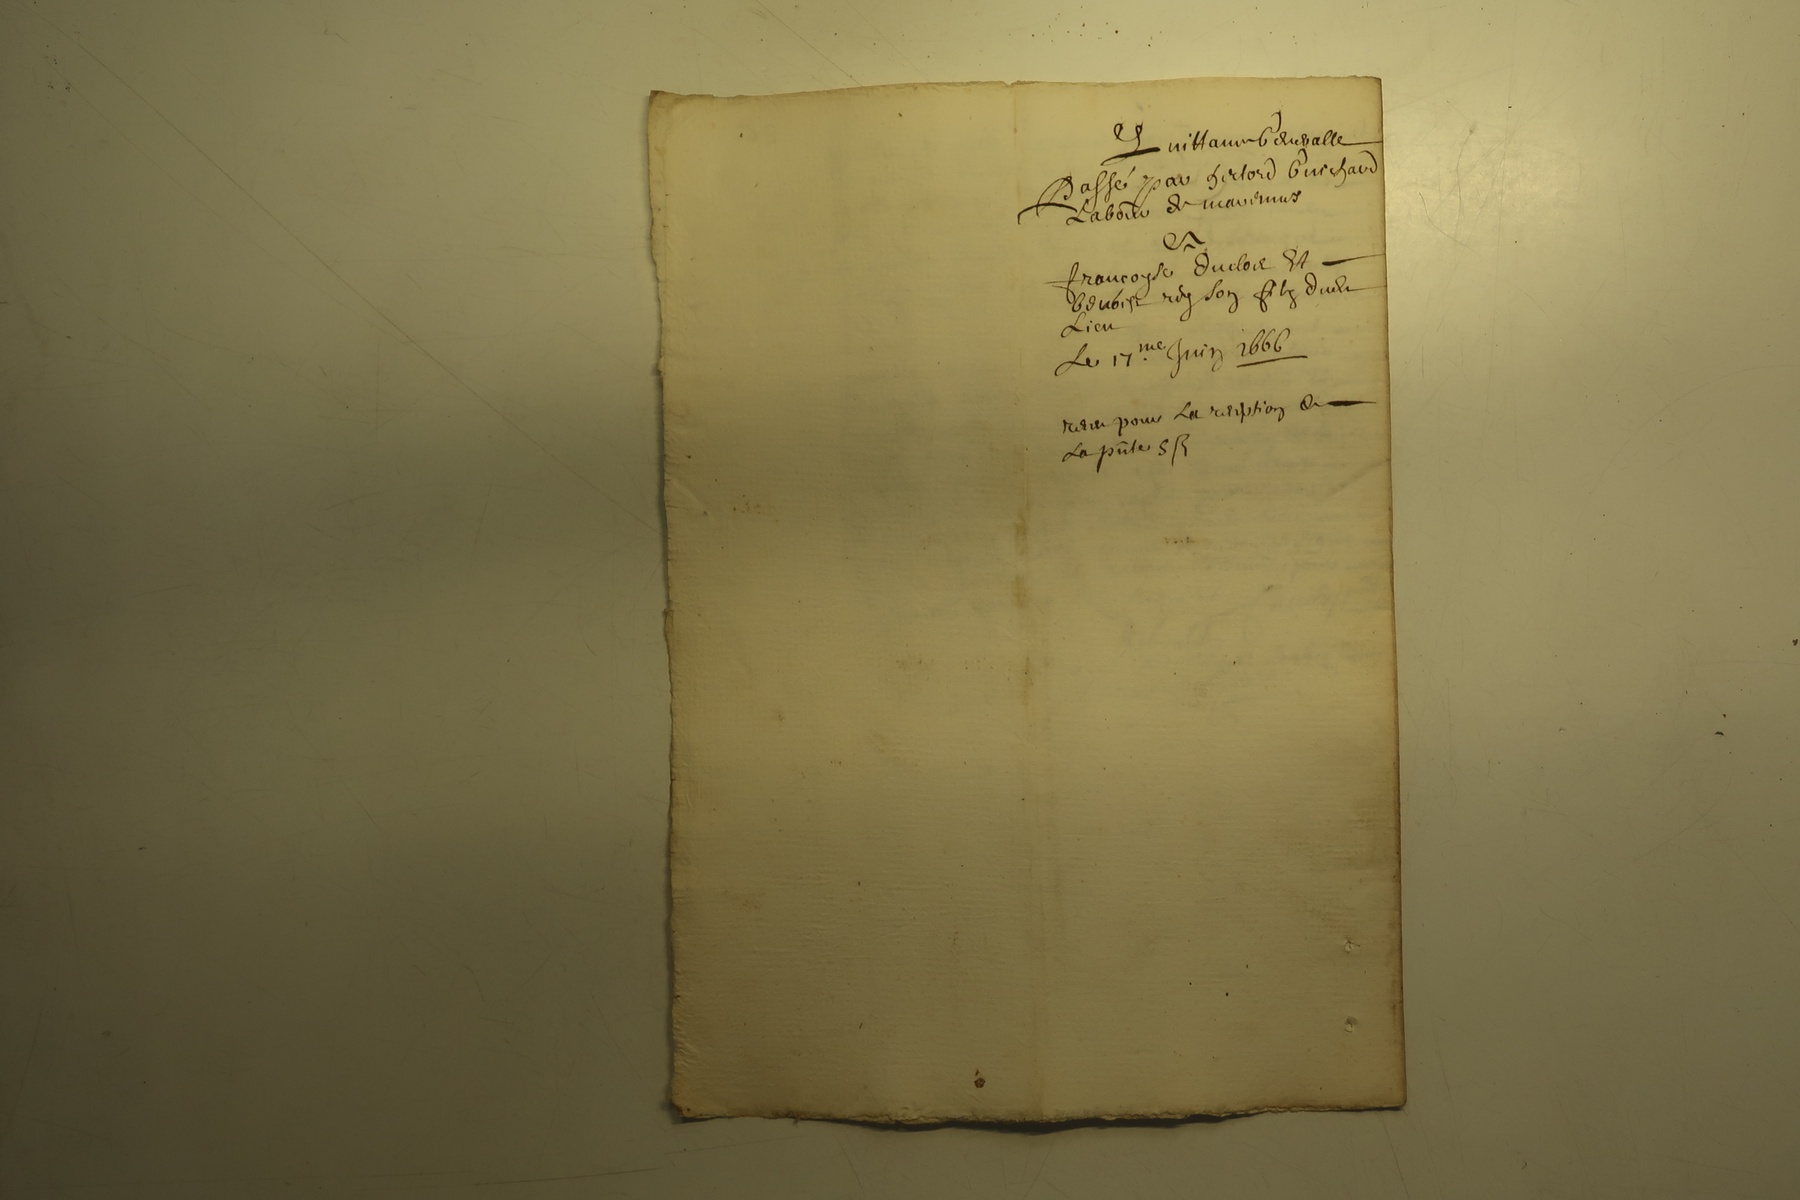 Quittance Generalle
Passé par Guichard
Labour de
A
Francoyse duclos Et
benoist rey son filz dudit
Lieu
Le 17.me Juin 1666
receu pour La reception de
La pñte 5 ß